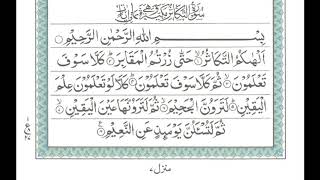 سُوْرَةُ التَّكَاثُرِ مَكِّيَّةٌ وَّهِيَ ثَمَانِ اٰيَاتٍ
بِسْمِ اللّٰهِ الرَّحْمٰنِ الرَّحِيْمِ
اَلْهٰىكُمُ التَّكَاثُرُ حَتّٰى زُرْتُمُ الْمَقَابِرَ كَلَّا سَوْفَ
تَعْلَمُوْنَ ثُمَّ كَلَّا سَوْفَ تَعْلَمُوْنَ كَلَّا لَوْ تَعْلَمُوْنَ عِلْمَ
الْيَقِيْنِ لَتَرَوُنَّ الْجَحِيْمَ ثُمَّ لَتَرَوُنَّهَا عَيْنَ الْيَقِيْنِ
ثُمَّ لَتُسْـَٔلُنَّ يَوْمَىِٕذٍ عَنِ النَّعِيْمِ
منزل ۷